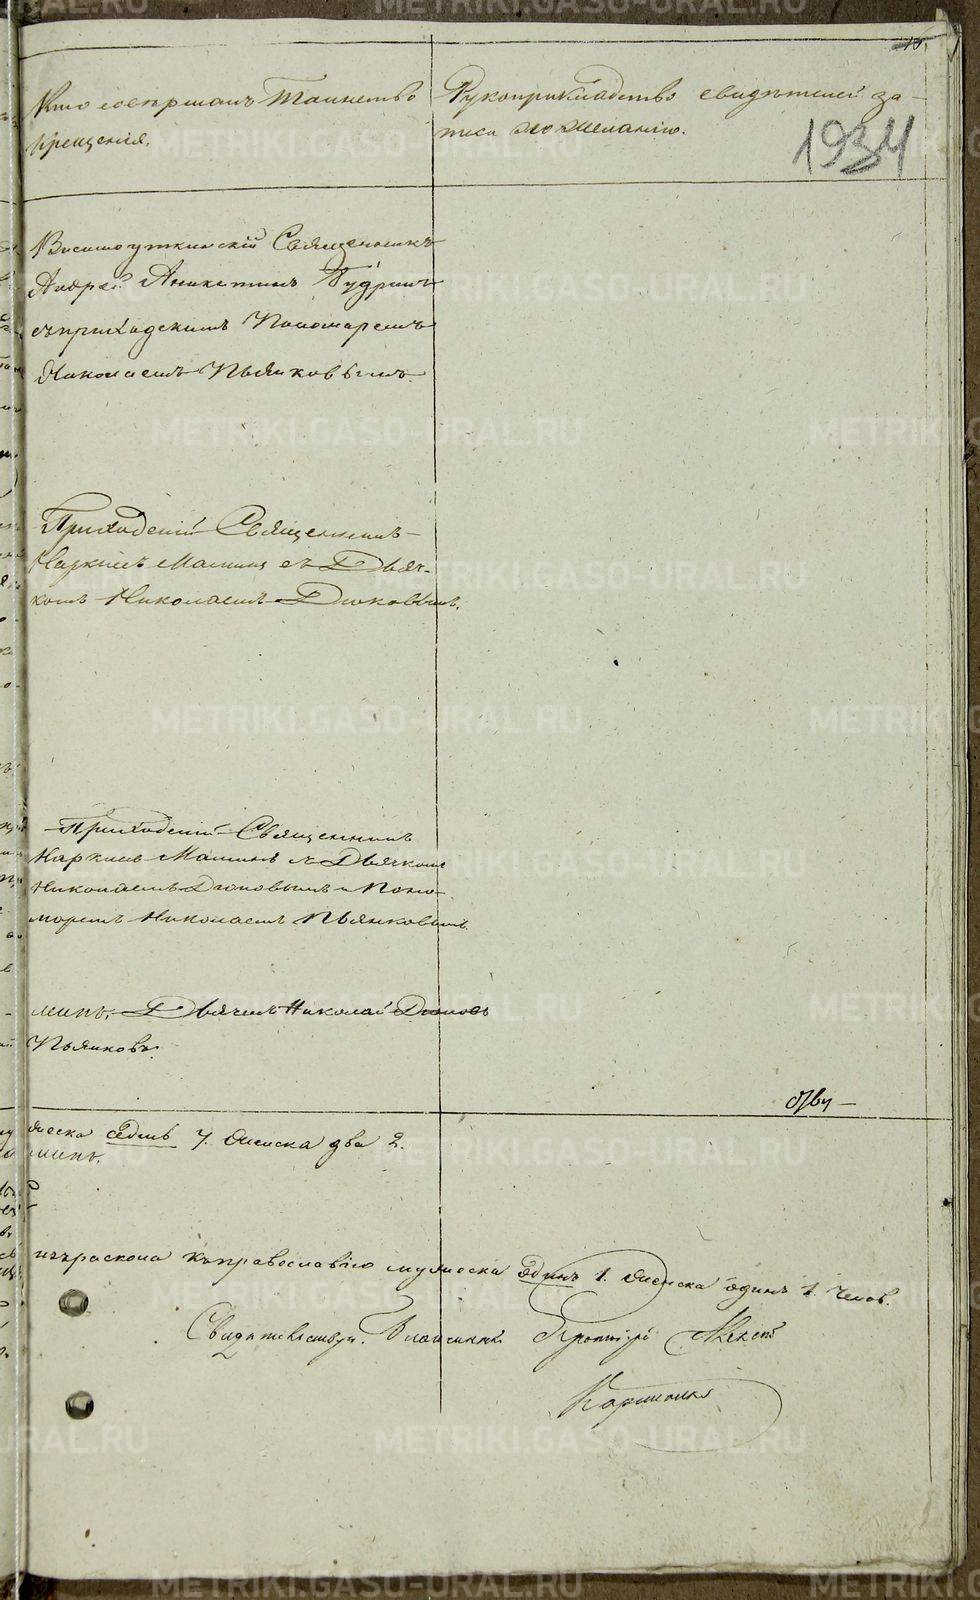 15
Кто совершалъ Таинство
крещенія.
Рукоприкладство свидѣтелей за-
писи по желанію.
1934
Висимоуткинскій Священникъ
Андрей Аникетинъ Пудринъ
съ приходскимъ Пономаремъ
Николаемъ Пьянковымъ.
Приходскій Священникъ
Наркисъ Маминъ съ Дьяч-
комъ Николаемъ Дюковымъ.
Приходскій Священникъ
Наркисъ Маминъ съ Дьячкомъ
Николаемъ Дюковымъ и Поно-
моремъ Николаемъ Пьянковымъ.
минъ. Дьячекъ Николай Дюковъ
Пьянковъ.
жеска седмь 7. женска два 2.
минъ.
изъ раскола къ православію мужеска одинъ 1. женска одинъ 1 челов.
Свидѣтельствуи. Благочинный Протоіерей
METRIKI.GASO-URAL.RU